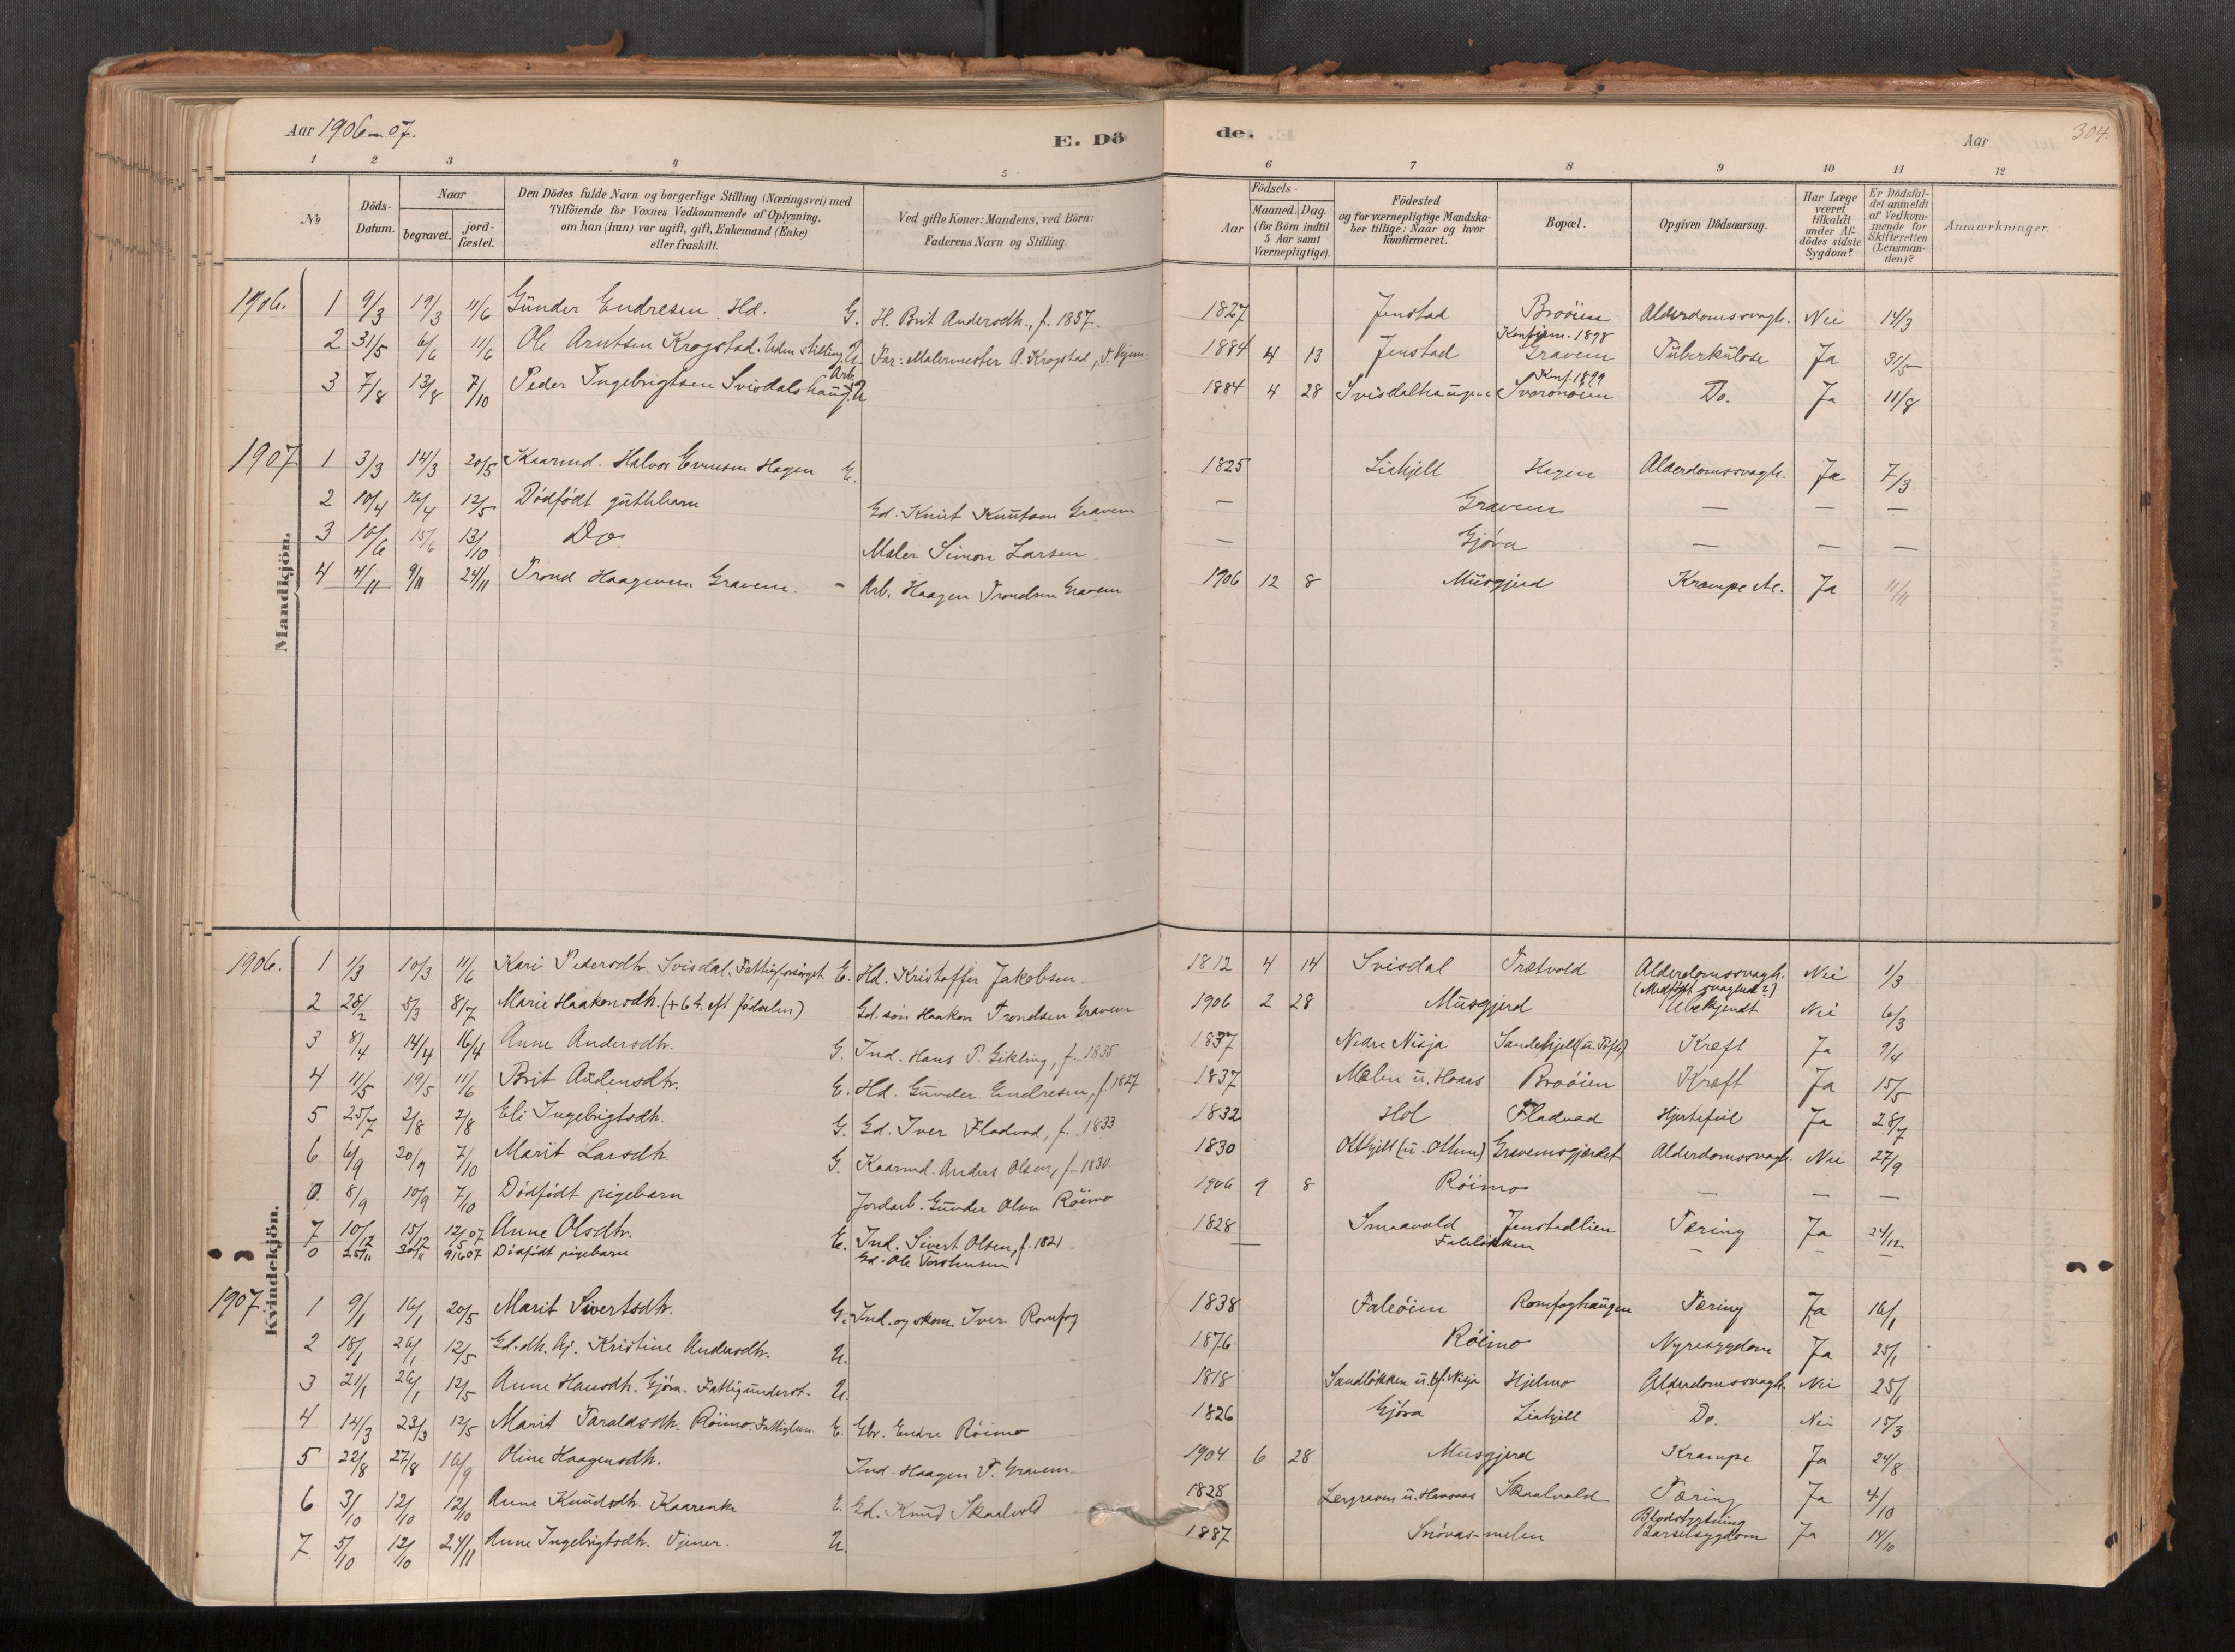 Aar 1906-07.
E. Dö
de.
Aar
304.
1 2 3 4 5 6 7 8 9 10 11 12
No
Döds-Datum.
Naar
begravet.
jord-fæstet.
Den Dödes fulde Navn og borgerlige Stilling (Næringsvei) med
Tilföiende for Voxnes Vedkommende af Oplysning,
om han (hun) var ugift, gift, Enkemand (Enke)
eller fraskilt.
Ved gifte Koner: Mandens, ved Börn:
Faderens Navn og Stilling.
Födsels-
Aar
Maaned. Dag.
(for Börn indtil
5 Aar samt
Værnepligtige).
Födested
og for værnepligtige Mandska-
ber tillige: Naar og hvor
konfirmeret.
Bopæl.
Opgiven Dödsaarsag.
Har Læge
været
tilkaldt
under Af-
dödes sidste
Sygdom?
Er Dödsfal-
det anmeldt
af Vedkom-
mende for
Skifteretten
(Lensman-
den)?
Anmærkninger.
Mandkjön.
1906. 1 9/3 19/3 11/6 Gunder Endresen Hd. G. H. Brit Andersdh., f. 1837. 1827 Jenstad Broöien Alderdomssvagh. Nei 14/3
2 31/5 6/6 11/6 Ole Arntsen Krogstad. Uden stilling U. Far: Malermester A. Krogstad, 1884 4 13 Jenstad Konfirm. 1898 Gravem Tuberkulose Ja 31/5
3 7/8 13/8 7/10 Peder Ingebrigtsen Svisdalshaug Arb. U 1884 4 28 Svisdalhaugen Konf. 1899 Do. Ja 11/8
1907 1 3/3 14/3 20/5 Kaarmd. Halvor Evensen Hagen E. 1825 Liahjell Hagen Alderdomssvagh. Ja 7/3
2 10/4 16/4 12/5 Dödfödt gutbarn Gd. Knut Knutsen Gravem — Gravem — — —
3 10/6 15/6 13/10 Do. Maler Simon Larsen — Gjöra — — —
4 4/11 9/11 24/11 Trond Haagensen Gravem. - Arb. Haagen Trondsen Gravem 1906 12 8 Musgjerd Krampe Ja 11/11
Kvindekjön.
1906. 1 1/3 10/3 11/6 Kari Pedersdtr. Svisdal. Fattigforsörget. E. Hd. Kristoffer Jakobsen. 1812 4 14 Svisdal Trætvold Alderdomssvagh. Nei 1/3
2 28/2 5/3 8/7 Marie Haakonsdh. (+ 6 t. eft. födselen) Gd. sön Haakon Trondsen Gravem 1906 2 28 Musgjerd (Medfödt svaghed?) Ubekjendt Nei 6/3
3 8/4 14/4 16/4 Anne Andersdtr. G. Ind. Hans P. Gikling, f. 1835 1837 Nedre Nisja Kræft Ja 9/4
4 11/5 19/5 11/6 Brit Andersdtr. E. Hd. Gunder Endresen, f. 1827 1837 Melen u. Hoaas Broöien Kræft Ja 15/5
5 25/7 2/8 2/8 Eli Ingebrigtsdh. G. Gd. Iver Fladvad, f. 1833 1832 Hol Fladvad Hjertefeil Ja 28/7
6 6/9 20/9 7/10 Marit Larsdh. G. Kaarmd. Anders Olsen, f. 1830. 1830 Gravemsgjærdet Alderdomssvagh. Nei 27/9
0. 8/9 10/9 7/10 Dödfödt pigebarn Jordarb. Gunder Olsen Röimo 1906 9 8 Röimo — — —
7 10/12 15/12 12/5 07 Anne Olsdtr. E. Ind. Sivert Olsen, f. 1821 1828 Smaavold Jenstadlien Tæring Ja 24/12
0 25/11 30/11 9/6 07 Dödfödt pigebarn Gd. Ole Torstensen — Falelökken — — —
1907. 1 9/1 16/1 20/5 Marit Sivertsdtr. G. Ind. og skom. Iver Romfog 1838 Faleöien Romfoghaugen Tæring Ja 16/1
2 18/1 26/1 12/5 Gd. dh. Kristine Andersdtr. U. 1876 Röimo Nyresygdom Ja 25/1
3 21/1 26/1 12/5 Anne Hansdh. Gjöra. Fattigunderst. U. 1818 Sandlökken Hjelmo Alderdomssvagh. Nei 25/1
4 14/3 23/3 12/5 Marit Taraldsdh. Röimo. Fattiglem E. Gbr. Endre Röimo 1826 Gjöra Liahjell Do. Nei 15/3
5 22/8 27/8 16/9 Oline Haagensdh. Ind. Haagen T. Gravem 1904 6 28 Musgjerd Krampe Ja 24/8
6 3/10 12/10 12/10 Anne Knudsdtr. Kaarenke E. Gd. Knud Skaalvold 1828 Skaalvold Tæring Ja 4/10
7 5/10 12/10 24/11 Anne Ingebrigtsdh. Tjener. U. 1887 Snövasmelen Blodstyrtning Barselsygdom Ja 14/10